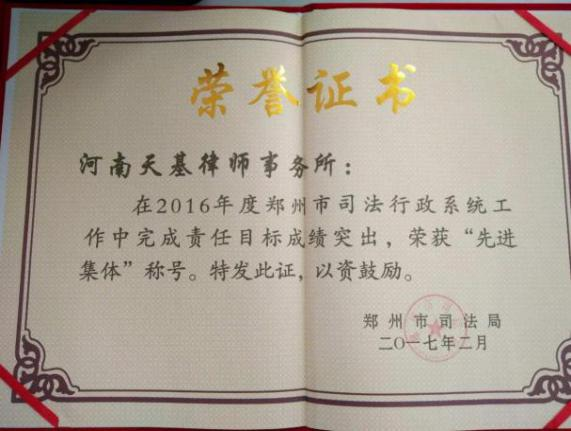 荣誉证书
河南天基律师事务所：
在2016年度郑州市司法行政系统工
作中完成责任目标成绩突出，荣获“先进
集体”称号。特发此证，以资鼓励。
郑州市司法局
二〇一七年二月